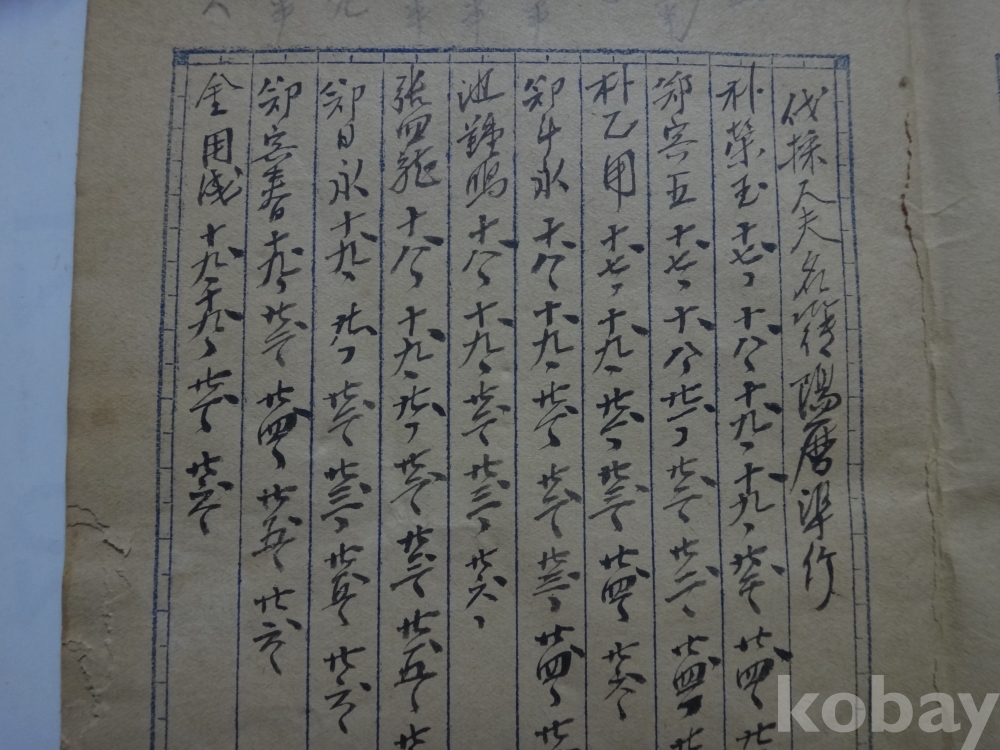 伐採人夫名簿陽曆準行
朴榮玉 十七、十八、十九、十九、廿二、廿四、廿
鄭寅五 十七、十八、廿一、廿二、廿三、廿四、廿
朴乙用 十七、十九、廿一、廿三、廿四、廿六、
鄭斗永 十八、十九、廿一、廿二、廿三、廿四、廿
池 鳴 十八、十九、廿二、廿三、廿六、
張四龍 十八、十九、廿一、廿二、廿三、廿五、廿
鄭日永 十九、廿一、廿二、廿三、廿五、廿六、
鄭寅春 十九、廿三、廿四、廿五、廿六、
金用成 十九、十九、廿二、廿六、
kobay